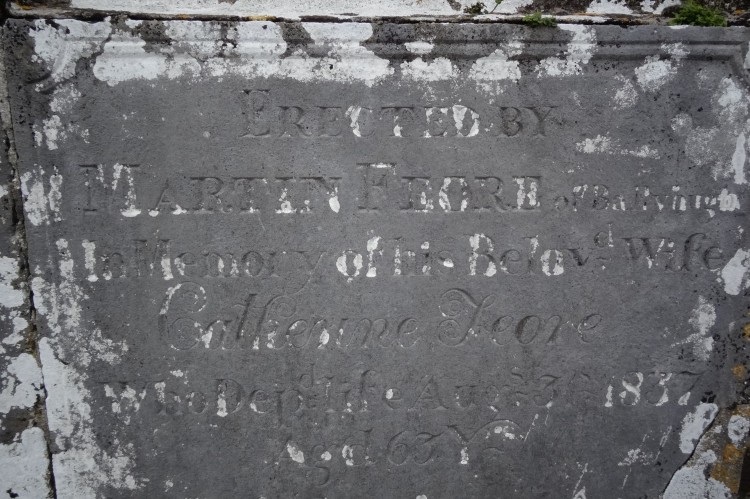 ERECTED BY
MARTIN FEORE of
In Memory of his Belovd. Wife
Catherine Feore
Who Depd. life Augst. 1837
Agd 63 Yrs